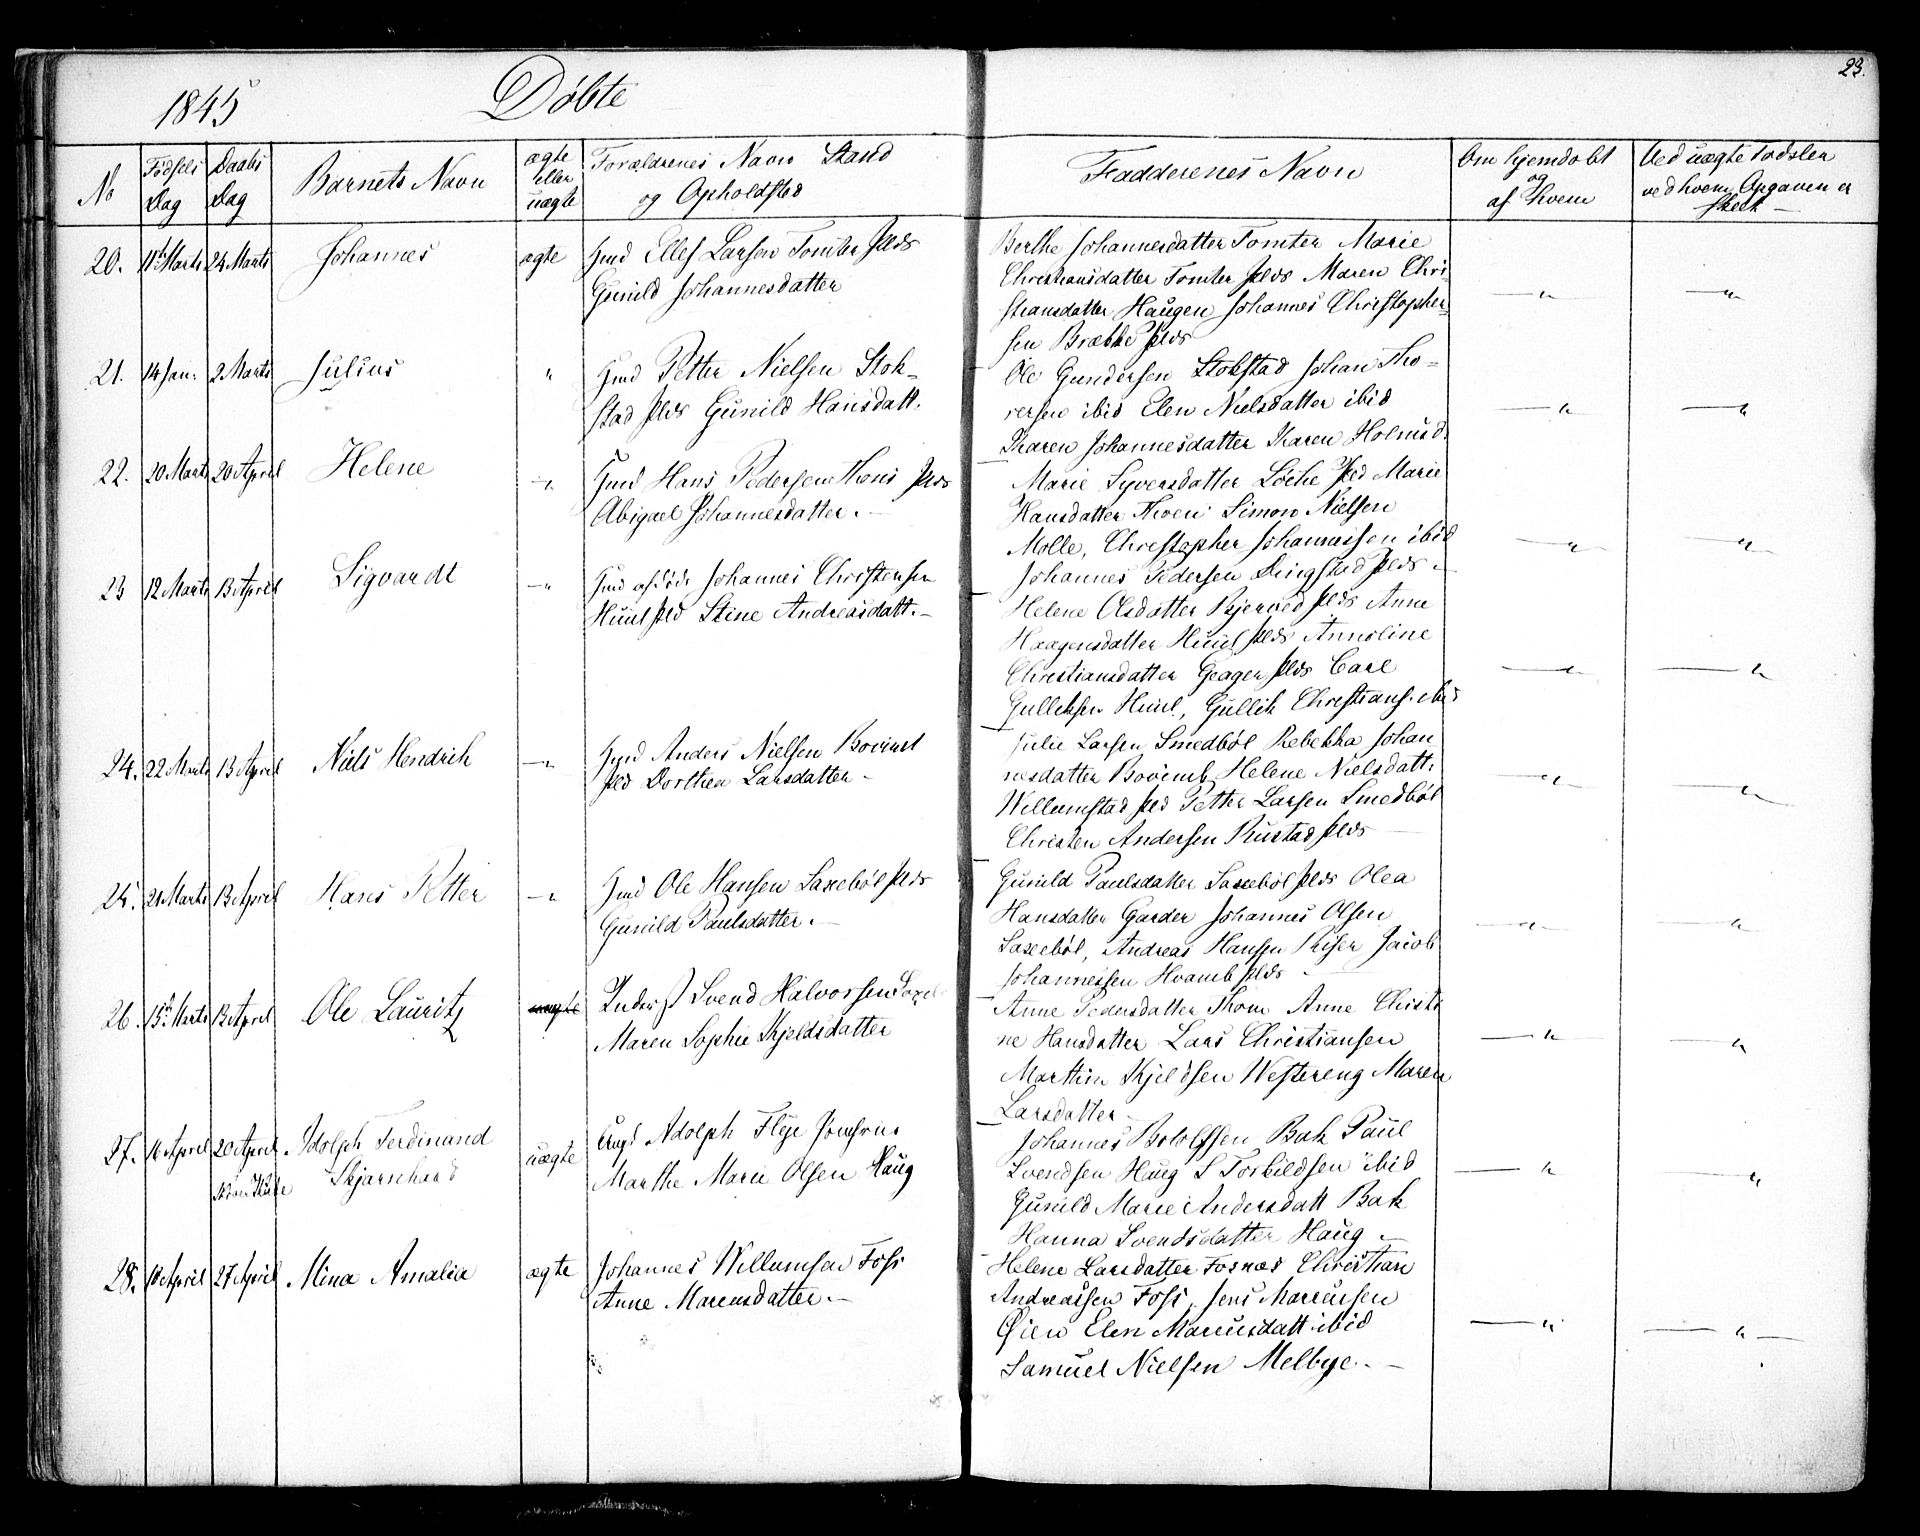 1845
Døbte
23.
No
Fødsels Dag
Daabs Dag
Barnets Navn
ægte eller uægte
Forældrenes Navn Stand
og Opholdsted
Faddernes Navn
Om hjemdøbt
og
af hvem
Ved uægte Fødsler
ved hvem Opgaven er
skeet
20. 11te Marts 24 Marts Johannes ægte Gmd Ellef Larsen Tomter Plds
Gunild Johannesdatter
Berthe Johannesdatter Tomter Marie
Christiansdatter Tomter Plds Maren Chri-
stiansdatter Haugen Johannes Christopher-
sen Brække Plds
21. 14 Jan. 2 Marts Julius " Gmd Petter Nielsen Stok-
stad Plds Gunild Hansdatt.
Ole Gundersen Stokstad Johan Tho-
resen ibid Elen Nielsdatter ibid
Karen Johannesdatter Karen Holmsd.
22. 20 Marts 20 April Helene " Gmd Hans Pedersen Thoni Plds
Abigael Johannesdatter.
Marie Syversdatter Løche Pld Marie
Hansdatter Thoen Simon Nielsen
Molle, Christopher Johannessen ibid
23 12 Marts 13 April Sigvardt " Gmd afdøde Johannes Christensen
Huul Pld Stine Andreasdatt.
Johannes Pedersen Lingstad Plds
Helene Olsdatter Bjerved Plds Anne
Haagensdatter Huul Plds Annoline
Christiansdatter Geager Plds Carl
Gulliksen Huul, Gullik Christians. ibid
24. 22 Marts 13 April Niels Hendrich " Gmd Anders Nielsen Bovimb
Pld Dorthea Larsdatter
Julie Larsen Smedbøl Rebekka Johan
nesdatter Bovimb Helene Nielsdatt.
Willumstad Pld Petter Larsen Smedbøl
Christen Andersen Rustad Plds
25. 21 Marts 13 April Hans Petter " Gmd Ole Hansen Saxebøl Plds
Gunild Paulsdatter.
Gunild Paulsdatter Saxebøl Plds Olea
Hansdatter Garder Johannes Olsen
Saxebøl, Andreas Hansen Riser Jacob
Johannessen Hvamb Plds
26. 15de Marts 13 April Ole Lauritz uægte Inderst Svend Halvorsen Saxeb
Maren Sophie Kjeldsdatter
Anne Pedersdatter Thom Anne Christi
ne Hansdatter Lars Christiansen
Marthin Kjeldsen Westereng Maren
Larsdatter
27. 16 April 20 April Adolph Ferdinand uægte Ungk Adolph Flye Jomfrue
Skjarshard
Marthe Marie Olsen Haug
Johannes Bololfsen Bak Paul
Svendsen Haug S Torkildsen ibid
Gunild Marie Andersdatt Bak
Hanna Svendsdatter Haug
28. 18 April 27 April Mina Amalia ægte Johannes Willumsen Foss
Anne Marcusdatter.
Helene Larsdatter Fosnæs Christian
Andreassen Foss, Jens Marcusen
Øien Elen Marcusdatt ibid
Samuel Nielsen Melbye.